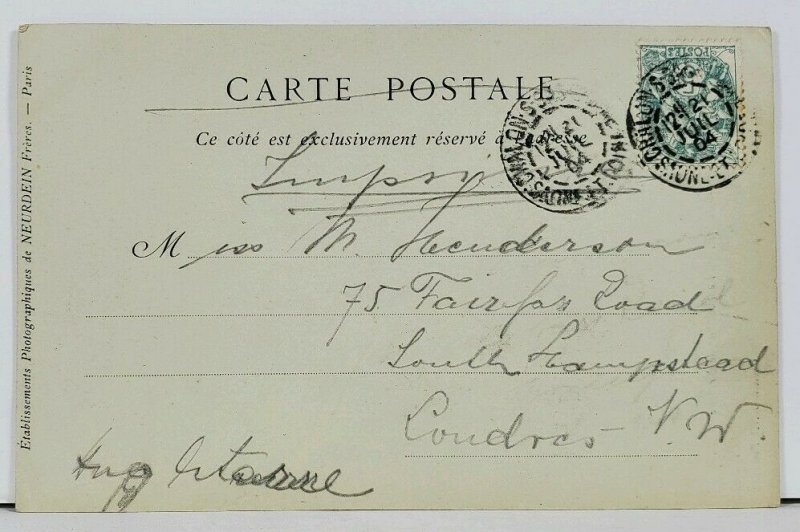 CARTE POSTALE
Ce côté est exclusivement réservé à
Miss M. Henderson
75 Fairfax Road
South Hampstead
Londres N.W.
Angleterre
Etablissements Photographiques de NEURDEIN Frères. — Paris
POSTES
CHALON-S-SAONE
SAONE-ET-LOIRE
21
JUIL
04